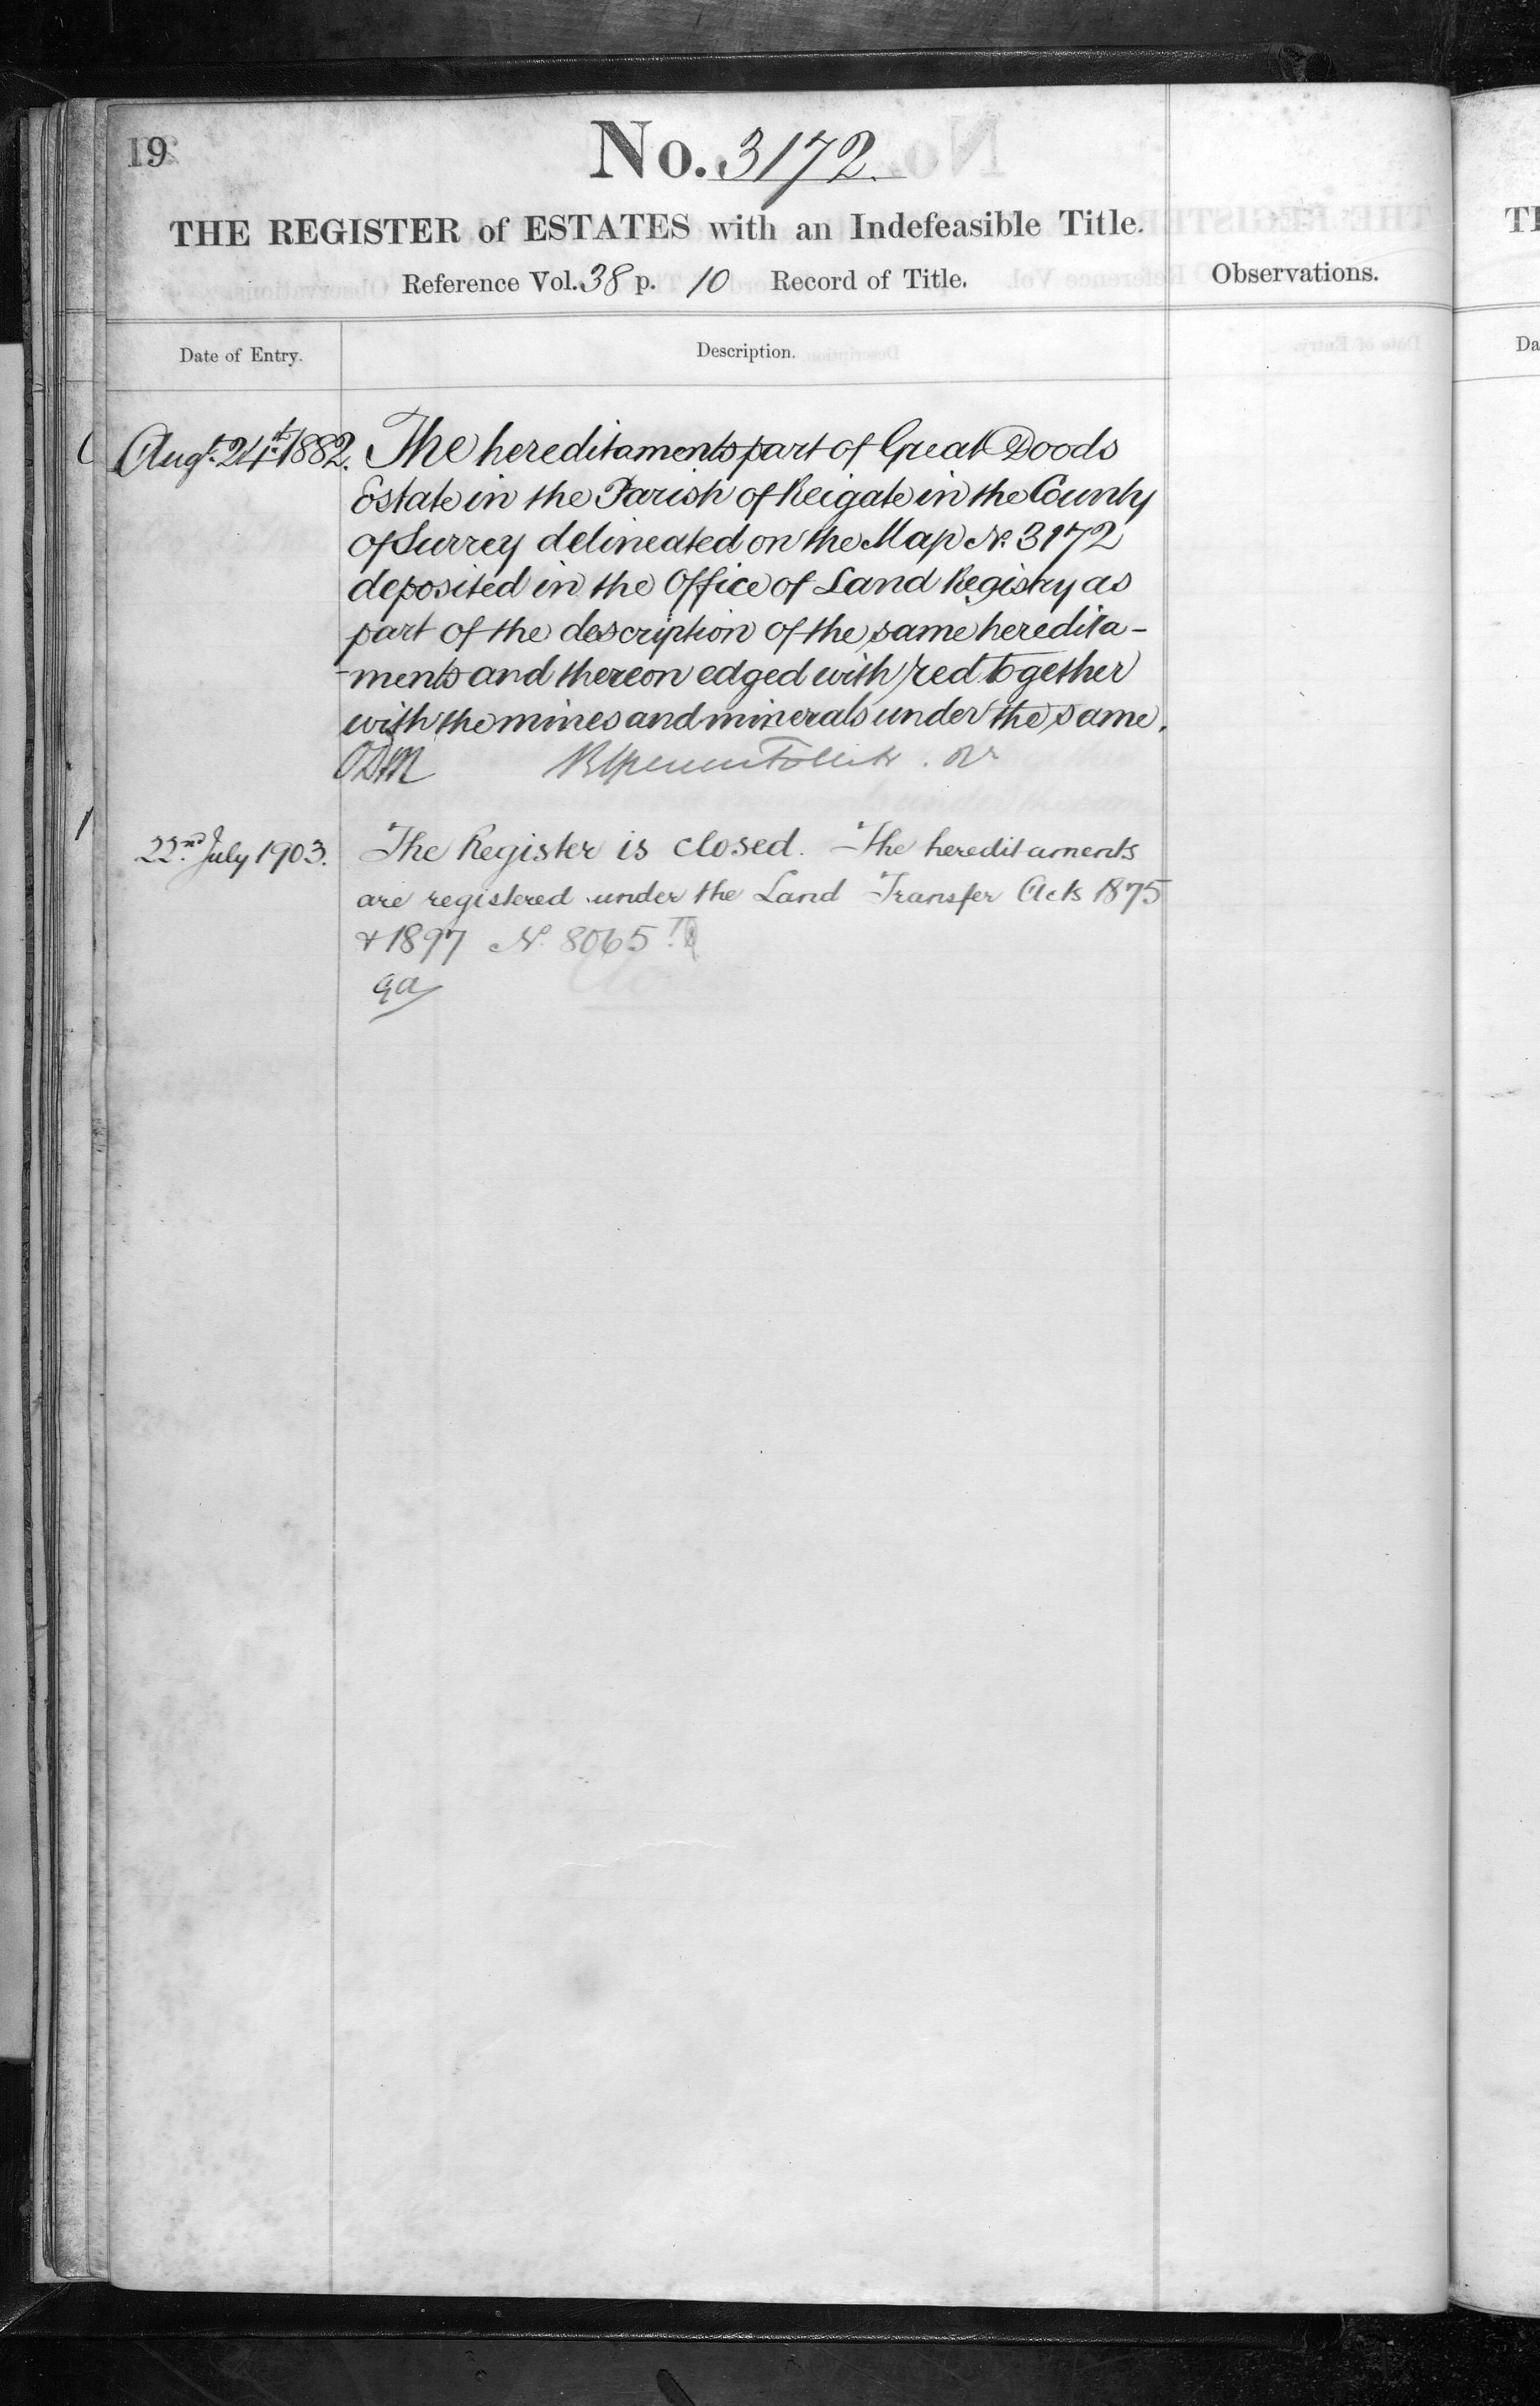 19
No. 3172.
THE REGISTER of ESTATES with an Indefeasible Title.
Reference Vol. 38 p. 10 Record of Title.
Observations.
Date of Entry.
Description.
Augt. 24th 1882.
The hereditaments part of Great Doods
Estate in the Parish of Reigate in the County
of Surrey delineated on the Map No. 3172
deposited in the Office of Land Registry as
part of the description of the same heredita-
-ments and thereon edged with red together
with the mines and minerals under the same.
22nd July 1903.
The Register is closed. The hereditaments
are registered under the Land Transfer Acts 1875
& 1897 No. 8065
TH
Da